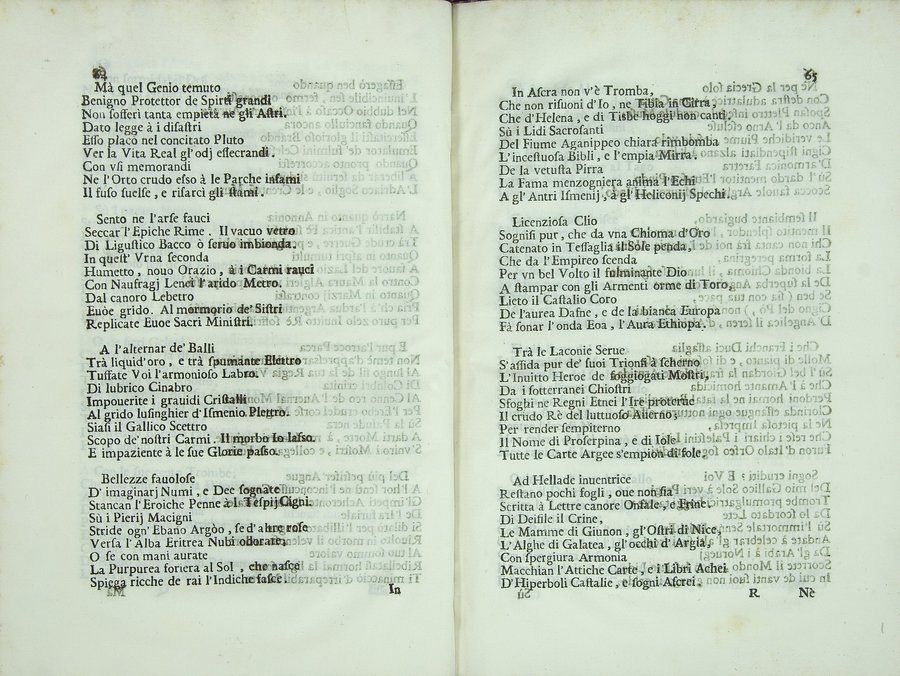 64
Mà quel Genio temuto
Benigno Protettor de Spirti grandi
Non sofferi tanta empietà ne gli Astri.
Dato legge à i disastri
Esso placo nel concitato Pluto
Ver la Vita Real gl'odj essecrandi.
Con vsi memorandi
Ne l'Orto crudo esso à le Parche infami
Il fuso suelse, e risarcì gli stami.
Sento ne l'arse fauci
Seccar l'Epiche Rime. Il vacuo vetro
Di Ligustico Bacco ò seruo imbionda.
In quest' Vrna seconda
Humetto, nouo Orazio, à i Carmi rauci
Con Naufragj Lenei l'arido Metro.
Dal canoro Lebetro
Euòe grido. Al mormorio de' Sistri
Replicate Euoe Sacri Ministri.
A l'alternar de' Balli
Trà liquid'oro, e trà spumante Elettro
Tuffate Voi l'armonioso Labro.
Di lubrico Cinabro
Impouerite i grauidi Cristalli
Al grido lusinghier d'Ismenio Plettro.
Siasi il Gallico Scettro
Scopo de' nostri Carmi. Il morbo Io lasso.
E impaziente à le sue Glorie passo.
Bellezze fauolose
D' imaginarj Numi, e Dee sognate
Stancan l'Eroiche Penne à i Tespij Cigni.
Sù i Pierij Macigni
Stride ogn' Ebano Argòo, se d'altre rose
Versa l'Alba Eritrea Nubi odorate,
O se con mani aurate
La Purpurea foriera al Sol, che nasce
Spiega ricche de rai l'Indiche fasce.
In
65
In Ascra non v'è Tromba,
Che non risuoni d'Io, ne Tibia in Citra,
Che d'Helena, e di Tisbe hoggi non canti;
Sù i Lidi Sacrosanti
Del Fiume Aganippeo chiara rimbomba
L'incestuosa Bibli, e l'empia Mirra.
De la vetusta Pirra
La Fama menzogniera anima l'Echi
A gl' Antri Ismenij, à gl' Heliconij Spechi.
Licenziosa Clio
Sognisi pur, che da vna Chioma d'Oro
Catenato in Tessaglia il Sole penda,
Che da l'Empireo scenda
Per vn bel Volto il fulminante Dio
A stampar con gli Armenti orme di Toro,
Lieto il Castalio Coro
De l'aurea Dafne, e de la bianca Europa
Fà sonar l'onda Eoa, l'Aura Ethiopa.
Trà le Laconie Serue
S'assida pur de' suoi Trionfi à scherno
L'Inuitto Heroe de soggiogati Mostri,
Da i sotterranei Chiostri
Sfoghi ne Regni Etnei l'Ire proterue
Il crudo Rè del luttuoso Auerno;
Per render sempiterno
Il Nome di Proserpina, e di Iole
Tutte le Carte Argee s'empion di fole.
Ad Hellade inuentrice
Restano pochi fogli, oue non sia
Scritta à Lettre canore Onfale, e Erine.
Di Deifile il Crine,
Le Mamme di Giunon, gl'Ostri di Nice,
L'Alghe di Galatea, gl'occhi d'Argia,
Con spergiura Armonia
Macchian l'Attiche Carte, e i Libri Achei
D'Hiperboli Castalie, e sogni Ascrei.
R
Nè